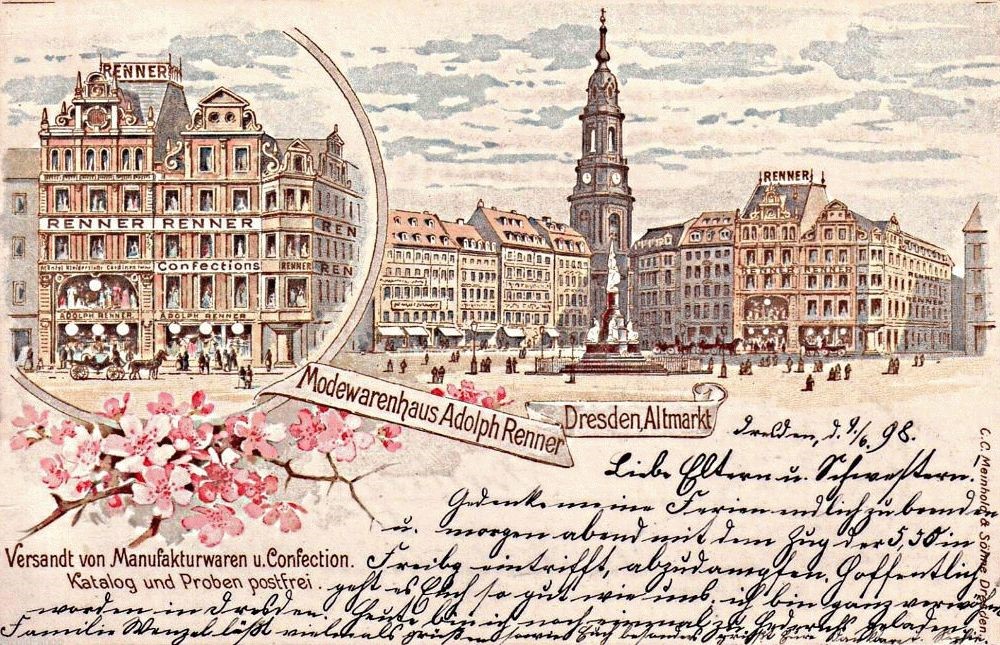 RENNER
RENNER RENNER
REN
Confections
RENNER
REN
ADOLPH RENNER
ADOLPH RENNER
RENNER
RENNER RENNER
Modewarenhaus Adolph Renner
Dresden, Altmarkt
Versandt von Manufakturwaren u. Confection.
Katalog und Proben postfrei.
C.C. Meinhold & Söhne Dresden.
Dresden, d. 9/6. 98.
Liebe Eltern u. Schwestern.
Gedenke meine Ferien endlich zu beenden
u. morgen abend mit dem Zug der 5,50 in
Freibg eintrifft, abzudampfen. Hoffentlich
geht es Euch so gut wie uns, ich bin ganz
worden in Dresden. Heute bin ich noch einmal zu geladen.
Familie Wenzel läßt vielmals grüßen sowie Euch besonders grüßt Eure dankbare